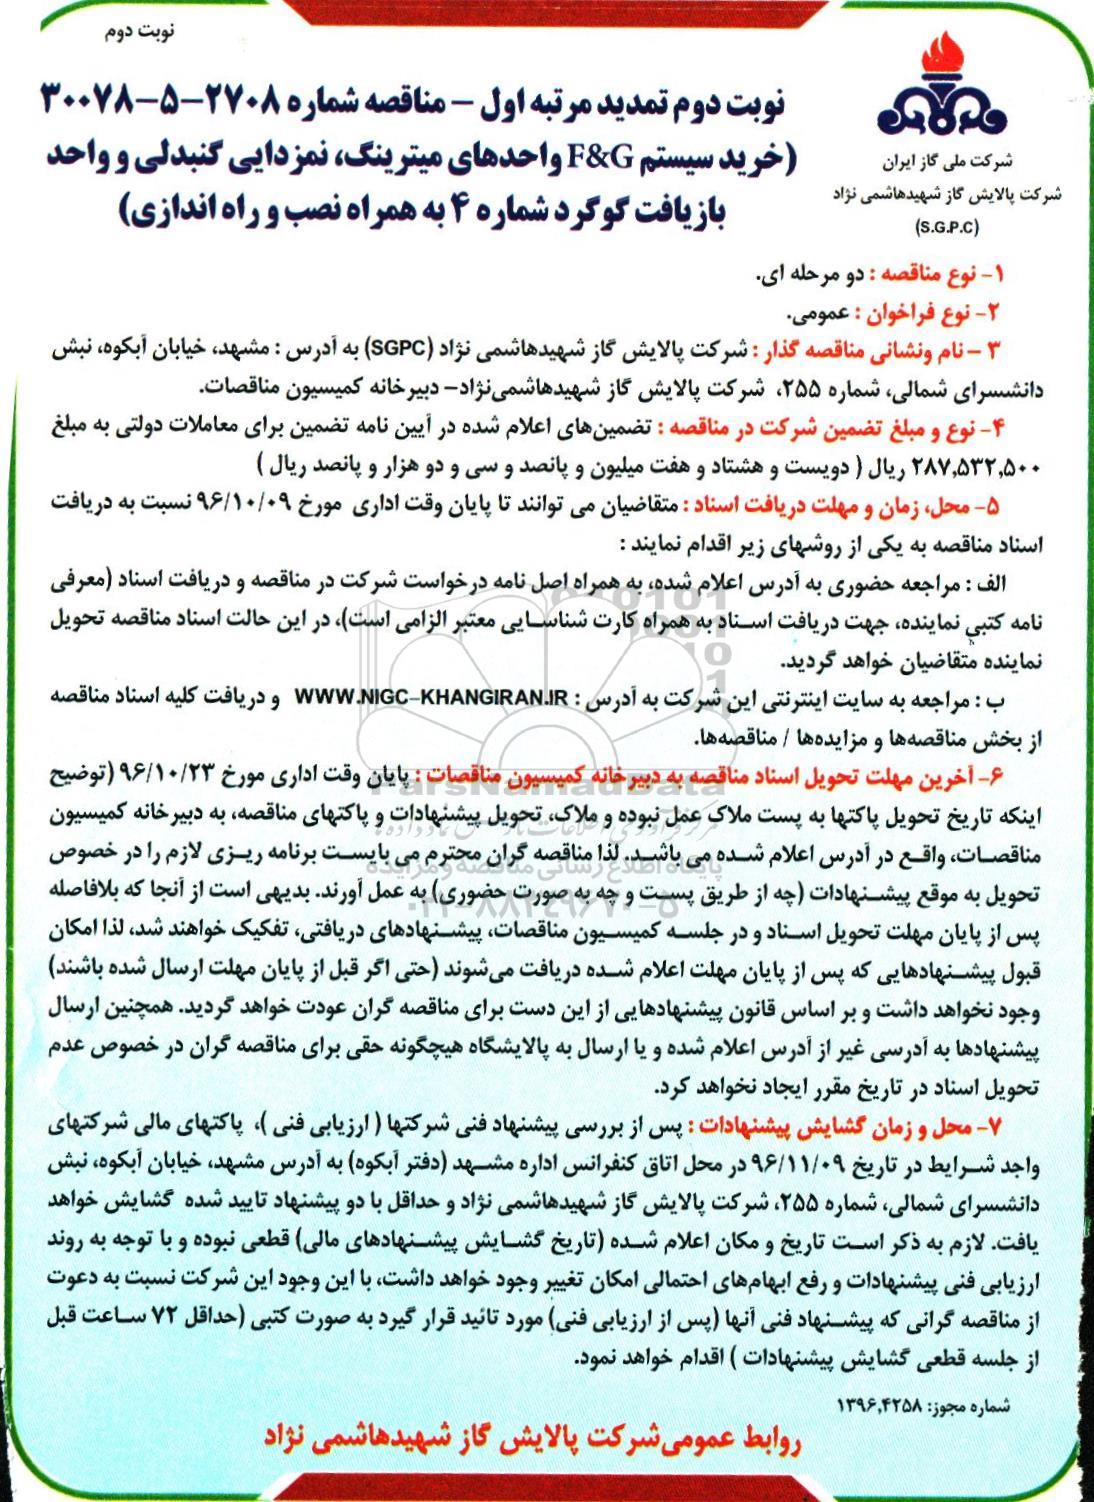 نوبت دوم
شرکت ملی گاز ایران
شرکت پالایش گاز شهیدهاشمی نژاد
(S.G.P.C)
نوبت دوم تمدید مرتبه اول – مناقصه شماره ۲۷۰۸–۵–۳۰۰۷۸
(خرید سیستم F&G واحدهای میترینگ، نمزدایی گنبدلی و واحد
بازیافت گوگرد شماره ۴ به همراه نصب و راه اندازی)
۱- نوع مناقصه : دو مرحله ای.
۲- نوع فراخوان : عمومی.
۳ – نام ونشانی مناقصه گذار : شرکت پالایش گاز شهیدهاشمی نژاد (SGPC) به آدرس : مشهد، خیابان آبکوه، نبش
دانشسرای شمالی، شماره ۲۵۵، شرکت پالایش گاز شهیدهاشمی‌نژاد– دبیرخانه کمیسیون مناقصات.
۴- نوع و مبلغ تضمین شرکت در مناقصه : تضمین‌های اعلام شده در آیین نامه تضمین برای معاملات دولتی به مبلغ
۲۸۷,۵۳۲,۵۰۰ ریال ( دویست و هشتاد و هفت میلیون و پانصد و سی و دو هزار و پانصد ریال )
۵- محل، زمان و مهلت دریافت اسناد : متقاضیان می توانند تا پایان وقت اداری مورخ ۹۶/۱۰/۰۹ نسبت به دریافت
اسناد مناقصه به یکی از روشهای زیر اقدام نمایند :
الف : مراجعه حضوری به آدرس اعلام شده، به همراه اصل نامه درخواست شرکت در مناقصه و دریافت اسناد (معرفی
نامه کتبی نماینده، جهت دریافت اسـناد به همراه کارت شناسـایی معتبر الزامی است)، در این حالت اسناد مناقصه تحویل
نماینده متقاضیان خواهد گردید.
ب : مراجعه به سایت اینترنتی این شرکت به آدرس : WWW.NIGC-KHANGIRAN.IR و دریافت کلیه اسناد مناقصه
از بخش مناقصه‌ها و مزایده‌ها / مناقصه‌ها.
۶- آخرین مهلت تحویل اسناد مناقصه به دبیرخانه کمیسیون مناقصات : پایان وقت اداری مورخ ۹۶/۱۰/۲۳ (توضیح
ParsNamadData
اینکه تاریخ تحویل پاکتها به پست ملاک عمل نبوده و ملاک، تحویل پیشنهادات و پاکتهای مناقصه، به دبیرخانه کمیسیون
مناقصـات، واقـع در آدرس اعلام شـده می باشـد. لذا مناقصه گران محترم می بایست برنامه ریـزی لازم را در خصوص
پایگاه اطلاع رسانی مناقصه و مزایده
تحویل به موقع پیشـنهادات (چه از طریق پسـت و چه به صورت حضوری) به عمل آورند. بدیهی است از آنجا که بلافاصله
۰۲۱-۸۸۳۴۹۶۷۰-۵
پس از پایان مهلت تحویل اسـناد و در جلسـه کمیسـیون مناقصات، پیشـنهادهای دریافتی، تفکیک خواهند شد، لذا امکان
قبول پیشـنهادهایی که پس از پایان مهلت اعلام شـده دریافت می‌شوند (حتی اگر قبل از پایان مهلت ارسال شده باشند)
وجود نخواهد داشت و بر اساس قانون پیشنهادهایی از این دست برای مناقصه گران عودت خواهد گردید. همچنین ارسال
پیشنهادها به آدرسی غیر از آدرس اعلام شده و یا ارسال به پالایشگاه هیچگونه حقی برای مناقصه گران در خصوص عدم
تحویل اسناد در تاریخ مقرر ایجاد نخواهد کرد.
۷- محل و زمان گشایش پیشنهادات : پس از بررسی پیشنهاد فنی شرکتها ( ارزیابی فنی )، پاکتهای مالی شرکتهای
واجد شـرایط در تاریخ ۹۶/۱۱/۰۹ در محل اتاق کنفرانس اداره مشـهد (دفتر آبکوه) به آدرس مشهد، خیابان آبکوه، نبش
دانشسرای شمالی، شماره ۲۵۵، شرکت پالایش گاز شهیدهاشمی نژاد و حداقل با دو پیشنهاد تایید شده گشایش خواهد
یافت. لازم به ذکر اسـت تاریخ و مکان اعلام شـده (تاریخ گشـایش پیشـنهادهای مالی) قطعی نبوده و با توجه به روند
ارزیابی فنی پیشنهادات و رفع ابهام‌های احتمالی امکان تغییر وجود خواهد داشت، با این وجود این شرکت نسبت به دعوت
از مناقصه گرانی که پیشـنهاد فنی آنها (پس از ارزیابی فنی) مورد تائید قرار گیرد به صورت کتبی (حداقل ۷۲ سـاعت قبل
از جلسه قطعی گشایش پیشنهادات ) اقدام خواهد نمود.
شماره مجوز: ۱۳۹۶,۴۲۵۸
روابط عمومی‌شرکت پالایش گاز شهیدهاشمی نژاد